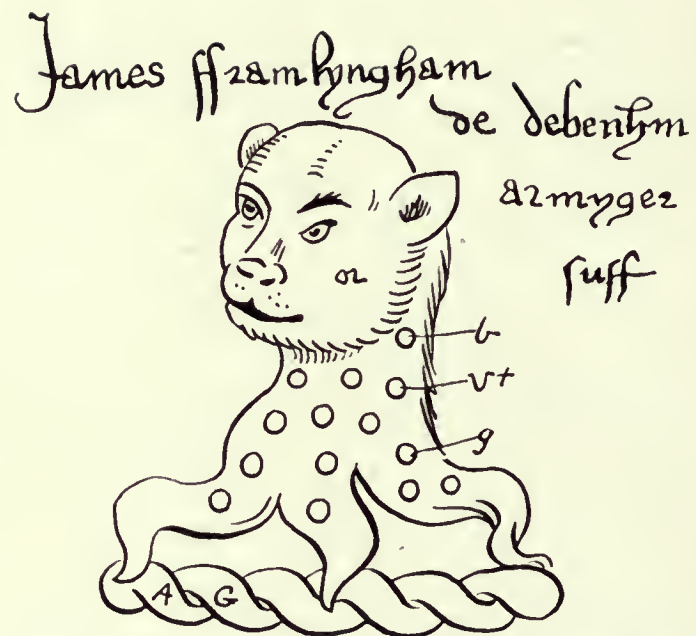 James fframlyngham
de debenhm
armyger
suff
or
b
vt
g
A G